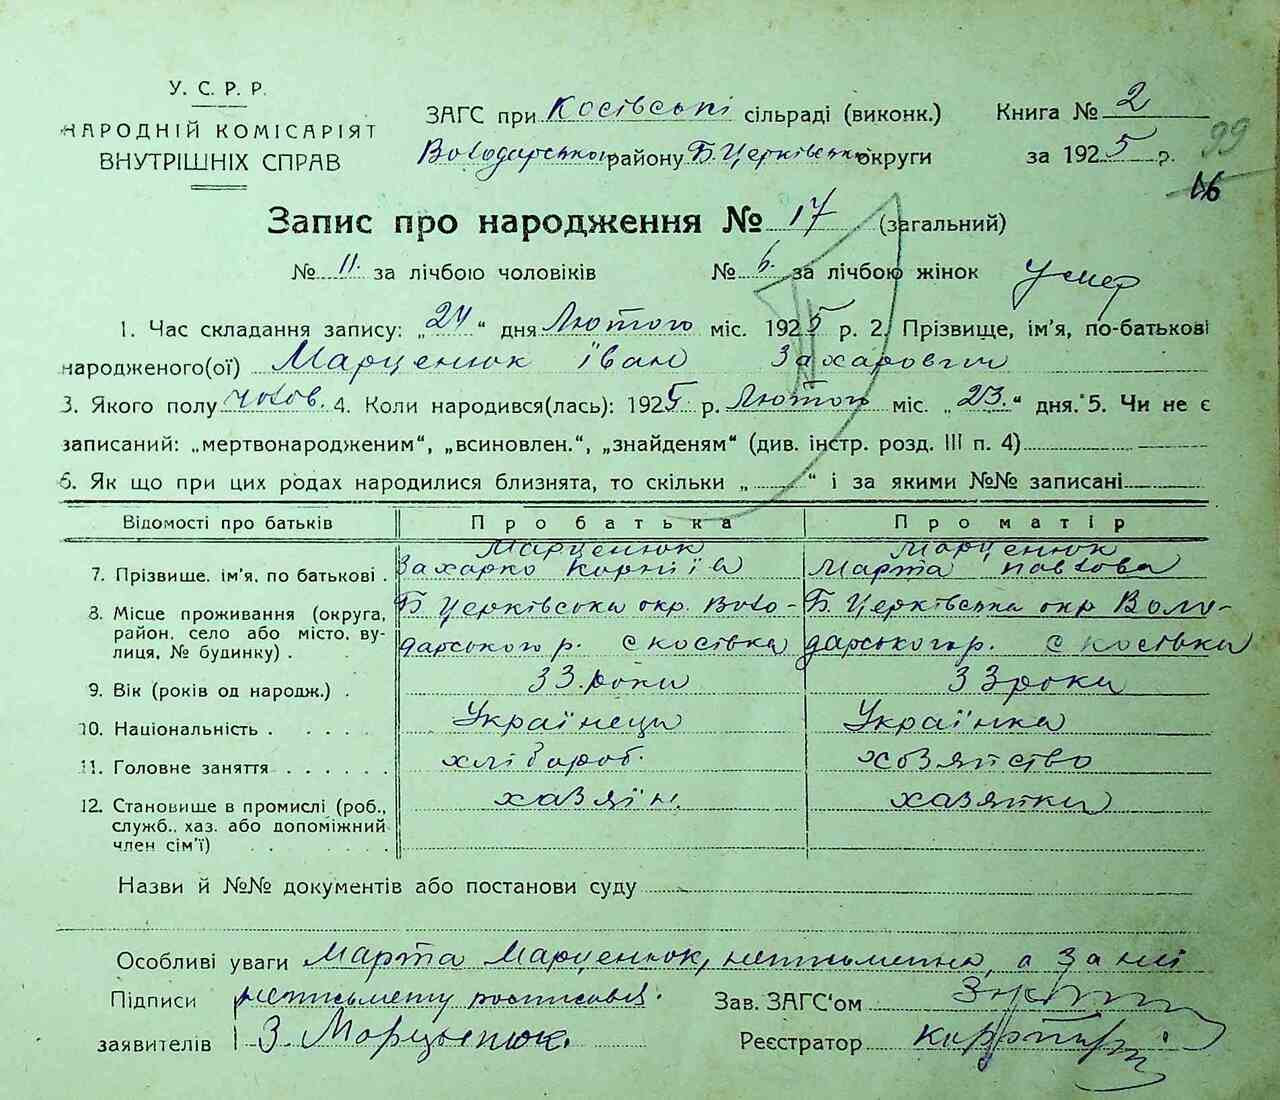 У. С. Р. Р.
НАРОДНІЙ КОМІСАРІЯТ
ВНУТРІШНІХ СПРАВ
ЗАГС при Косівські сільраді (виконк.) Книга № 2
Володарського району Б. Церківської округи за 1925 р.
99
16
Запис про народження № 17 (загальний)
№ 11. за лічбою чоловіків № 6. за лічбою жінок
Умер
1. Час складання запису: „24“ дня Лютого міс. 1925 р. 2. Прізвище, ім'я, по-батькові
народженого(ої) Марценюк Іван Захарович
3. Якого полу чолов. 4. Коли народився(лась): 1925 р. Лютого міс. „23.“ дня. 5. Чи не є
записаний: „мертвонародженим“, „всиновлен.“, „знайденям“ (див. інстр. розд. III п. 4)
6. Як що при цих родах народилися близнята, то скільки „ “ і за якими №№ записані
Відомості про батьків Про батька Про матір
Марценюк Марценюк
7. Прізвище, ім'я, по батькові . Захарко Корніїв Марта Павлова
8. Місце проживання (округа, Б. Церківська окр. Воло- Б. Церківська окр Воло-
район, село або місто, ву- дарського р. с Косівка дарського р. с Косівка
лиця, № будинку) .
9. Вік (років од народж.) . 33 роки 33 роки
10. Національність . . . . . Українець Українка
11. Головне заняття . . . . . . хлібороб. хозяйство
12. Становище в промислі (роб., хазяїн. хазяйка
служб., хаз. або допоміжний
член сім'ї) . . . . .
Назви й №№ документів або постанови суду
Особливі уваги Марта Марценюк, неписьменна, а за неї
Підписи неписьмену росписався. Зав. ЗАГС'ом
заявителів З. Марценюк. Реєстратор